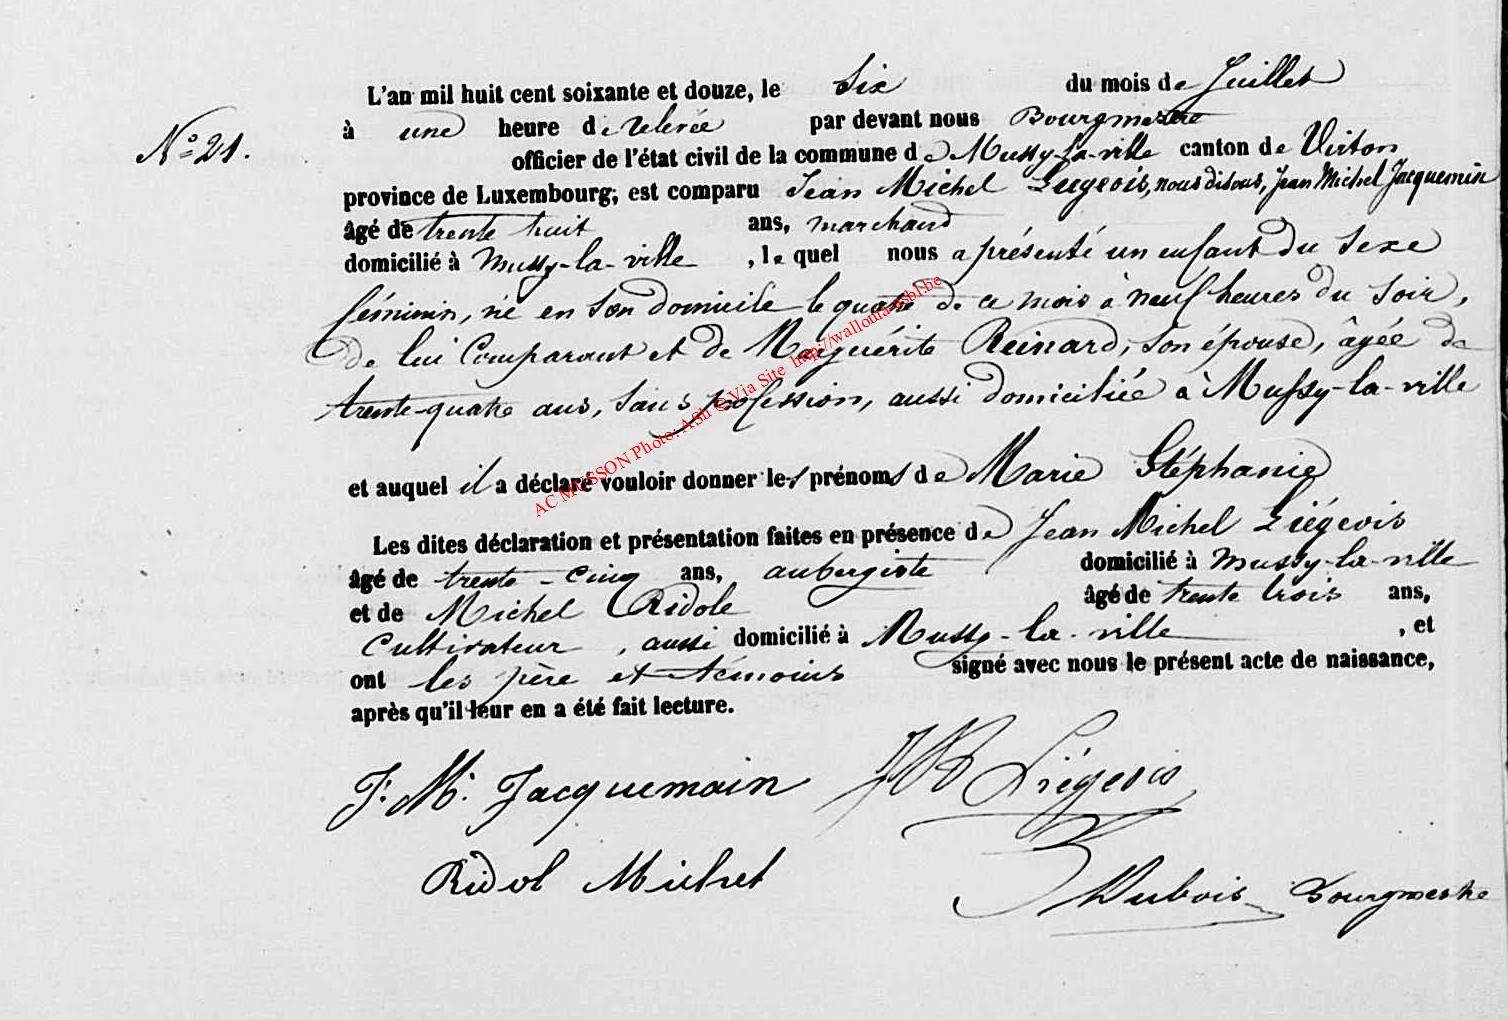 L'an mil huit cent soixante et douze, le six du mois de Juillet
N° 21.
à une heure de relevée par devant nous Bourgmestre
officier de l'état civil de la commune de Mussy-la-ville canton de Virton
province de Luxembourg, est comparu Jean Michel Liégeois, nous disons, Jean Michel Jacquemin
âgé de trente huit ans, marchand
domicilié à Mussy-la-ville, le quel nous a présenté un enfant du sexe
féminin, né en son domicile le quatre de ce mois à neuf heures du soir,
de lui Comparant et de Marguérite Reinard, son épouse, âgée de
trente-quatre ans, sans profession, aussi domiciliée à Mussy-la-ville
et auquel il a déclaré vouloir donner les prénoms de Marie Stéphanie
Les dites déclaration et présentation faites en présence de Jean Michel Liégeois
âgé de trente-cinq ans, aubergiste domicilié à Mussy-la-ville
et de Michel Ridole âgé de trente trois ans,
cultivateur, aussi domicilié à Mussy-la-ville, et
ont les père et témoins signé avec nous le présent acte de naissance,
après qu'il leur en a été fait lecture.
J. M. Jacquemain Liégeois
Ridol Michel
Dubois Bourgmestre
AC MUSSON Photo: ASh © Via Site http://wallonia-asbl.be